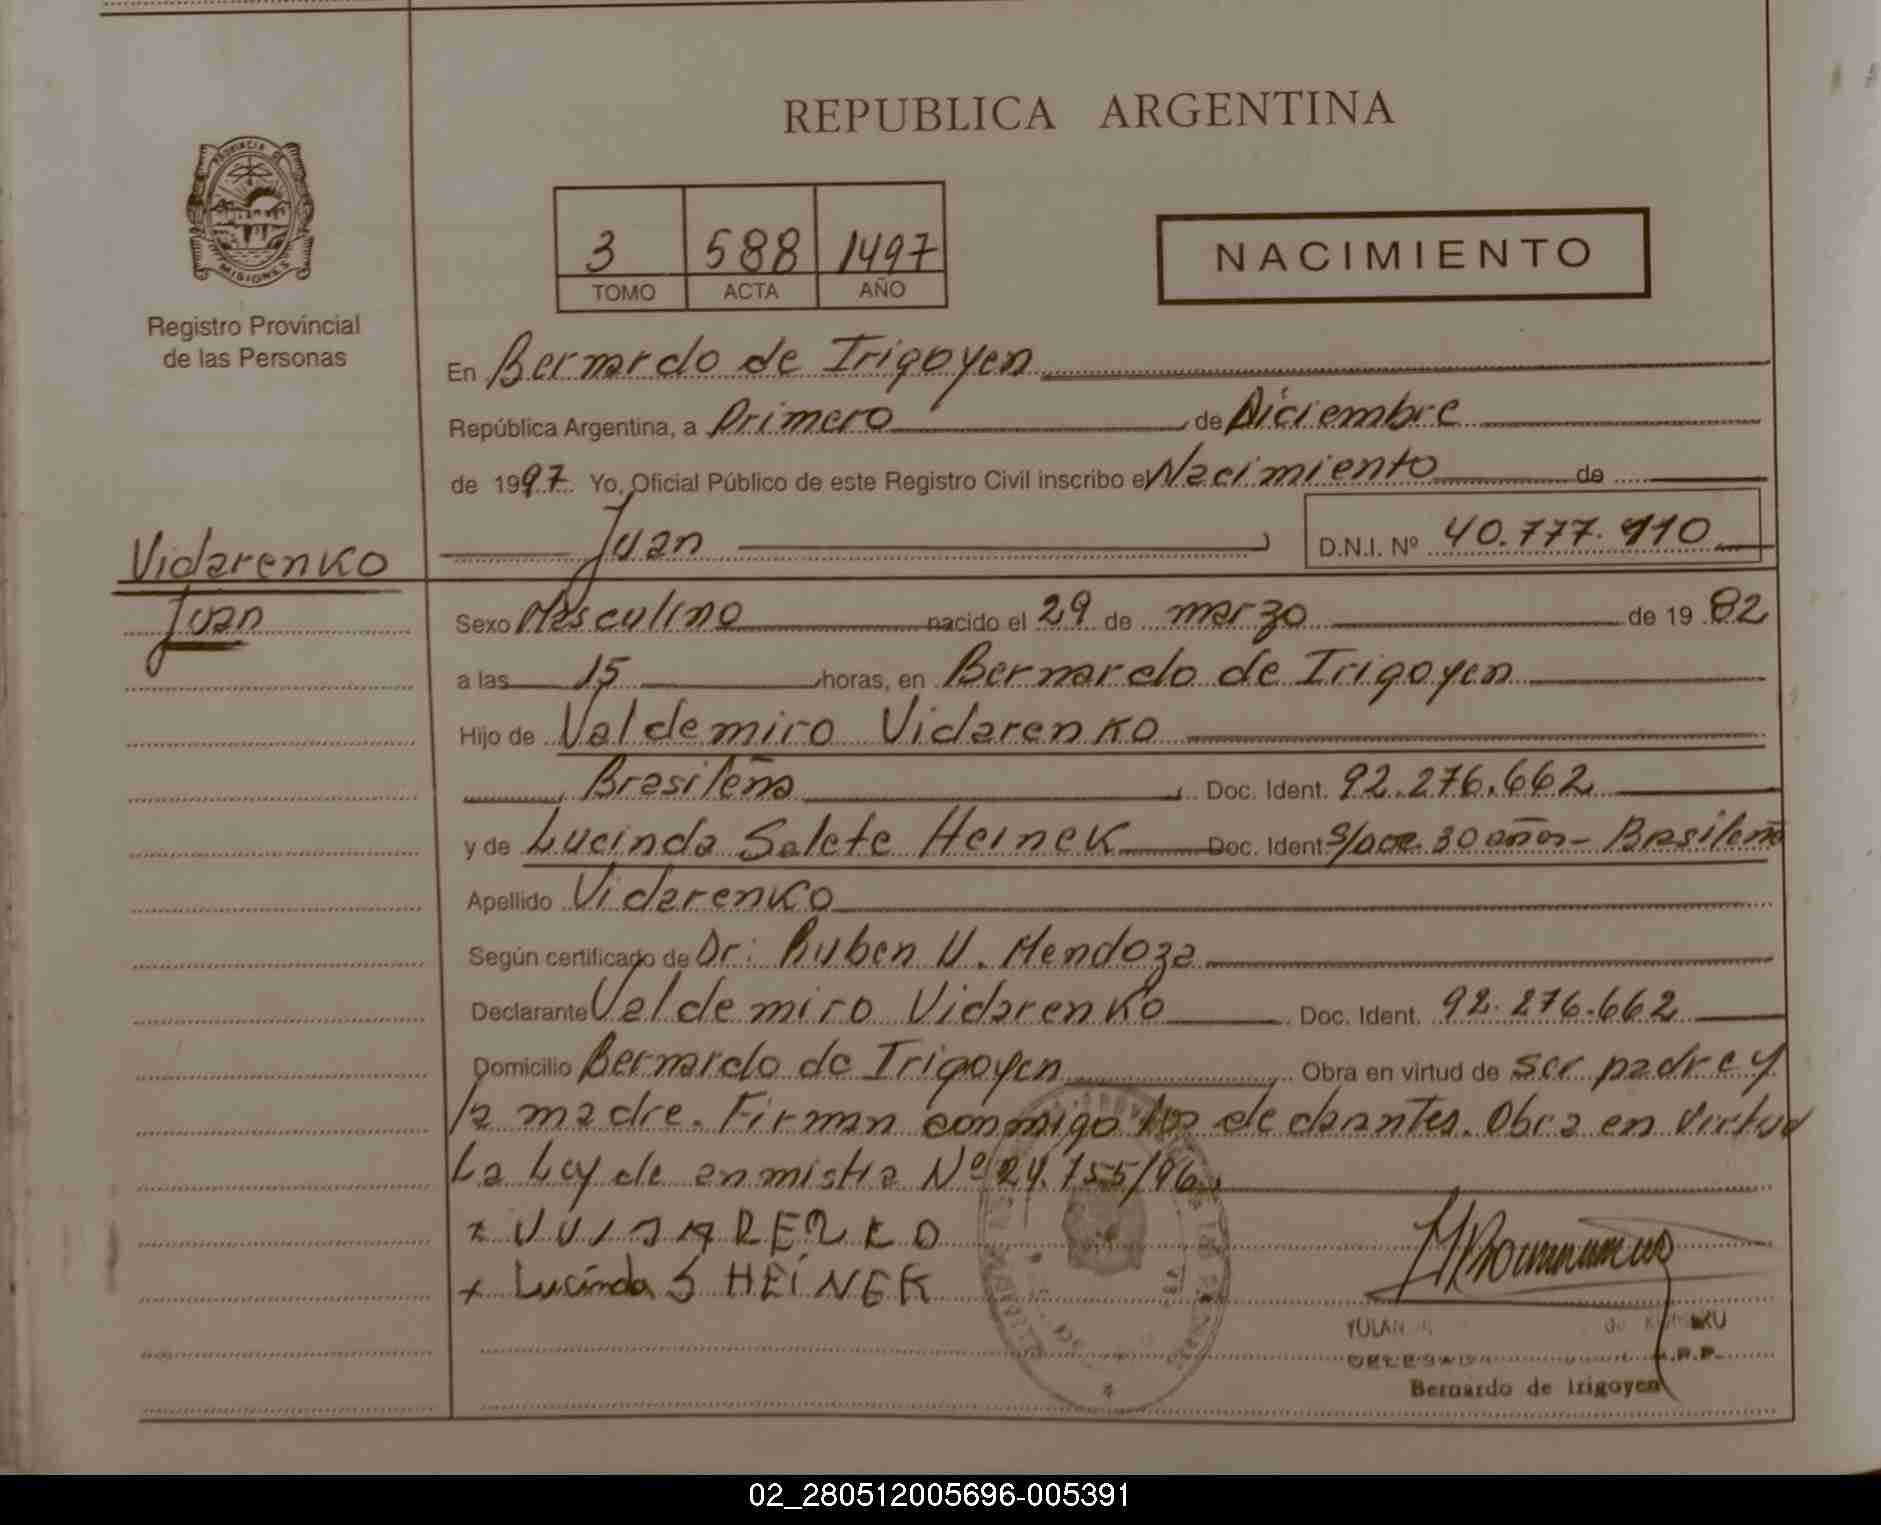 REPUBLICA ARGENTINA
PROVINCIA DE
MISIONES
Registro Provincial
de las Personas
3 588 1997
TOMO ACTA AÑO
NACIMIENTO
En Bernardo de Irigoyen
República Argentina, a Primero de Diciembre
de 1997 Yo, Oficial Público de este Registro Civil inscribo el Nacimiento de
Juan D.N.I. Nº 40.777.910
Vidarenko
Juan
Sexo Masculino nacido el 29 de marzo de 1982
a las 15 horas, en Bernardo de Irigoyen
Hijo de Valdemiro Vidarenko
Brasileño Doc. Ident. 92.276.662
y de Lucinda Salete Heinek Doc. Ident. 30 años - Brasileña
Apellido Vidarenko
Según certificado de Dr: Ruben U. Mendoza
Declarante Valdemiro Vidarenko Doc. Ident. 92.276.662
Domicilio Bernardo de Irigoyen Obra en virtud de ser padre y
la madre. Firman conmigo los declarantes. Obra en virtud
La Ley de enmistia Nº 24.755/96
Lucinda S HEINEK
Bernardo de Irigoyen
02_280512005696-005391